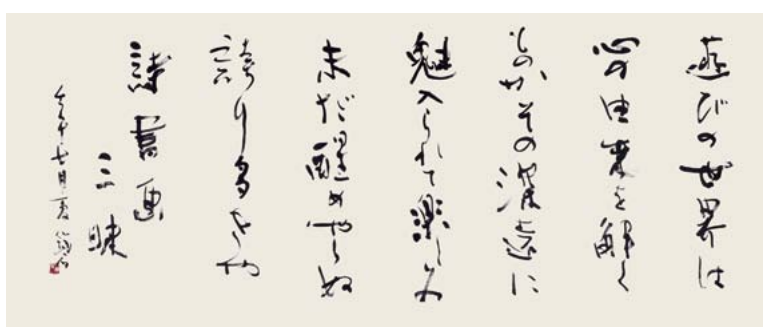 遊びの世界は
心の由来を解く
ものかその深遠に
魅入られて楽しみ
未だ醒めやらぬ
誇り多きや
詩書画
三昧
七月